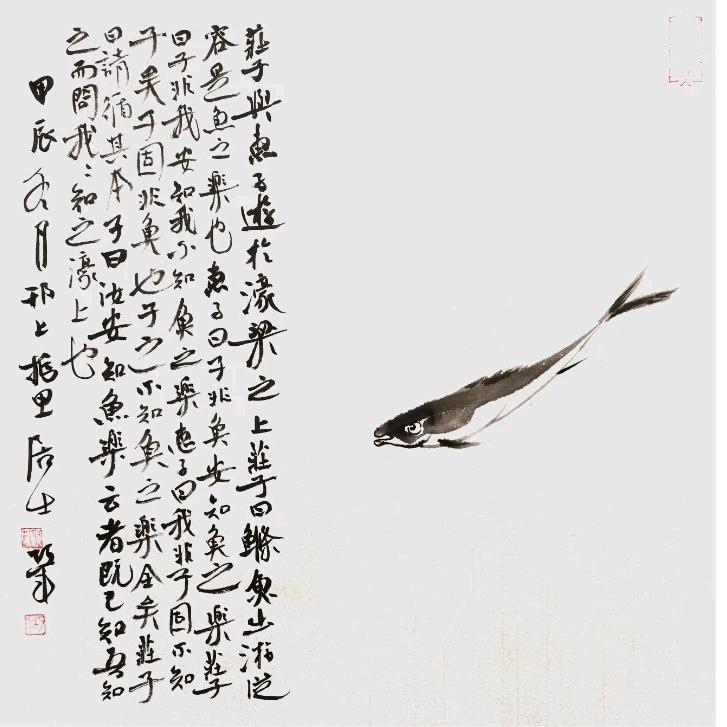 莊子與惠子遊於濠梁之上莊子曰鰷魚出游從
容是魚之樂也惠子曰子非魚安知魚之樂莊子
曰子非我安知我不知魚之樂惠子曰我非子固不知
子矣子固非魚也子之不知魚之樂全矣莊子
曰請循其本子曰汝安知魚樂云者既已知吾知
之而問我〻知之濠上也
甲辰冬月邗上里居士筆